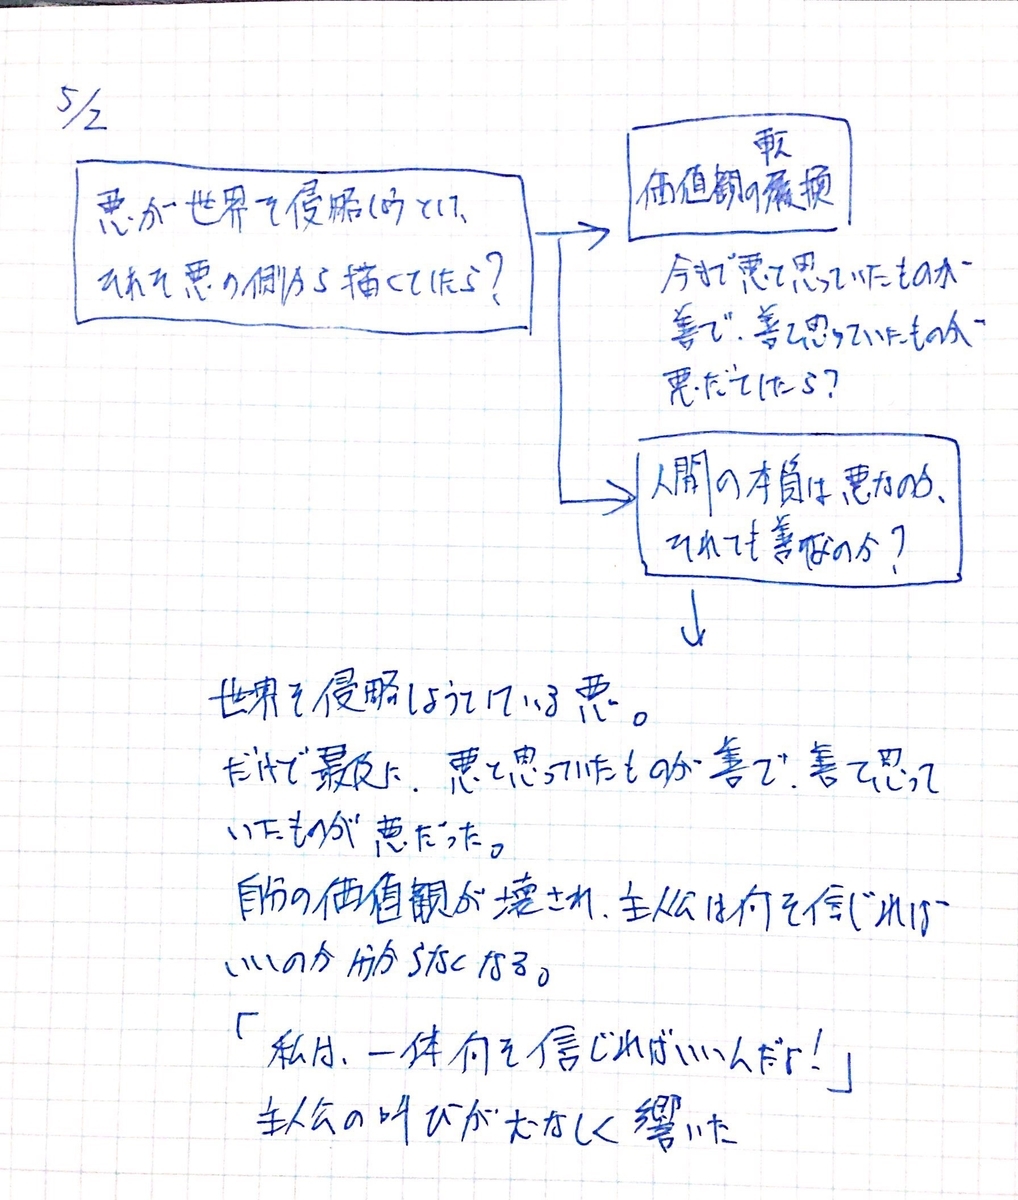 5/2
悪が世界を侵略しようとして、
それを悪の側から描くとしたら?
転
価値観の展換
今まで悪と思っていたものが
善で、善と思っていたものが
悪だとしたら?
人間の本質は悪なのか、
それとも善なのか?
世界を侵略しようとしている悪。
だけど最後に、悪と思っていたものが善で、善と思って
いたものが悪だった。
自分の価値観が壊され、主人公は何を信じれば
いいのか分からなくなる。
「私は、一体何を信じればいいんだよ!」
主人公の叫びがむなしく響いた